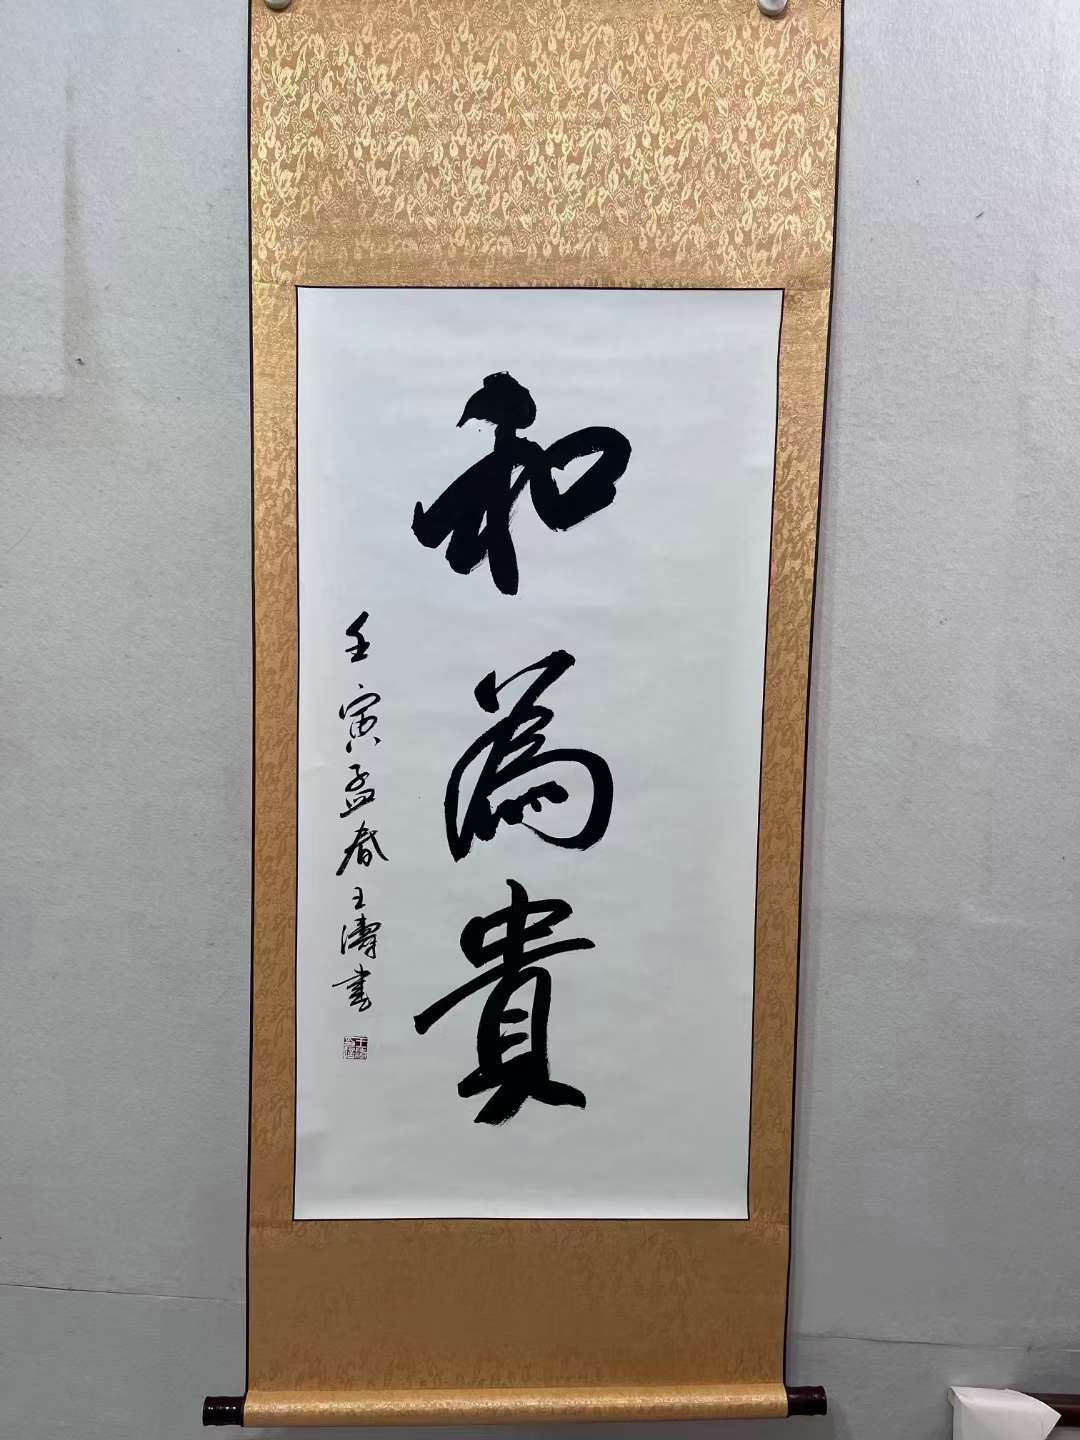 和為貴
壬寅孟春王濤書